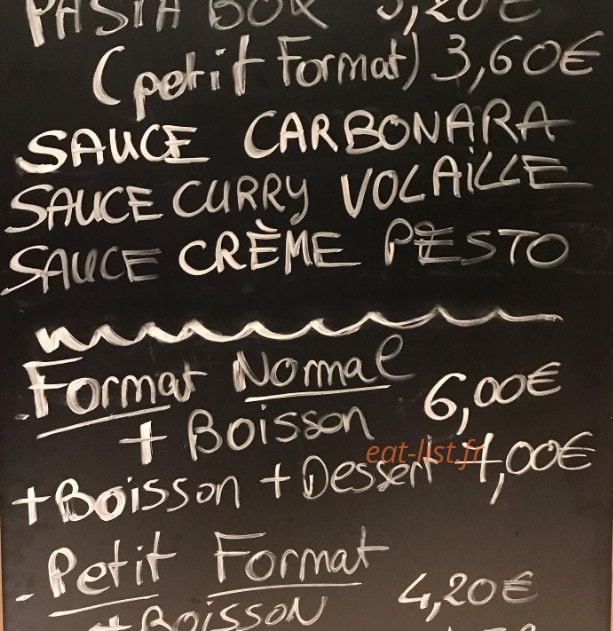 PASTA BOX 5,20€
(petit Format) 3,60€
SAUCE CARBONARA
SAUCE CURRY VOLAILLE
SAUCE CRÈME PESTO
- Format Normal
+ Boisson 6,00€
eat-list.fr
+ Boisson + Dessert 7,00€
- Petit Format
+ Boisson 4,20€